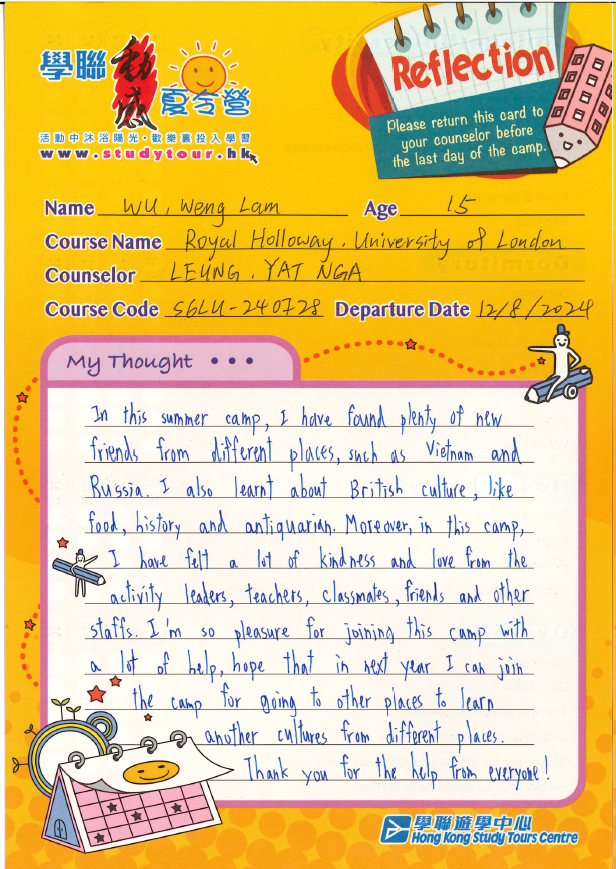 學聯 動感 夏令營
活動中沐浴陽光・歡樂裏投入學習
www.studytour.hk
Reflection
Please return this card to
your counselor before
the last day of the camp.
Name WU, Weng Lam Age 15
Course Name Royal Holloway. University of London
Counselor LEUNG. YAT NGA
Course Code SGLU-240728 Departure Date 12/8/2024
My Thought • • •
In this summer camp, I have found plenty of new
friends from different places, such as Vietnam and
Russia. I also learnt about British culture, like
food, history and antiquarian. Moreover, in this camp,
I have felt a lot of kindness and love from the
activity leaders, teachers, classmates, friends and other
staffs. I'm so pleasure for joining this camp with
a lot of help, hope that in next year I can join
the camp for going to other places to learn
another cultures from different places.
Thank you for the help from everyone!
學聯遊學中心
Hong Kong Study Tours Centre